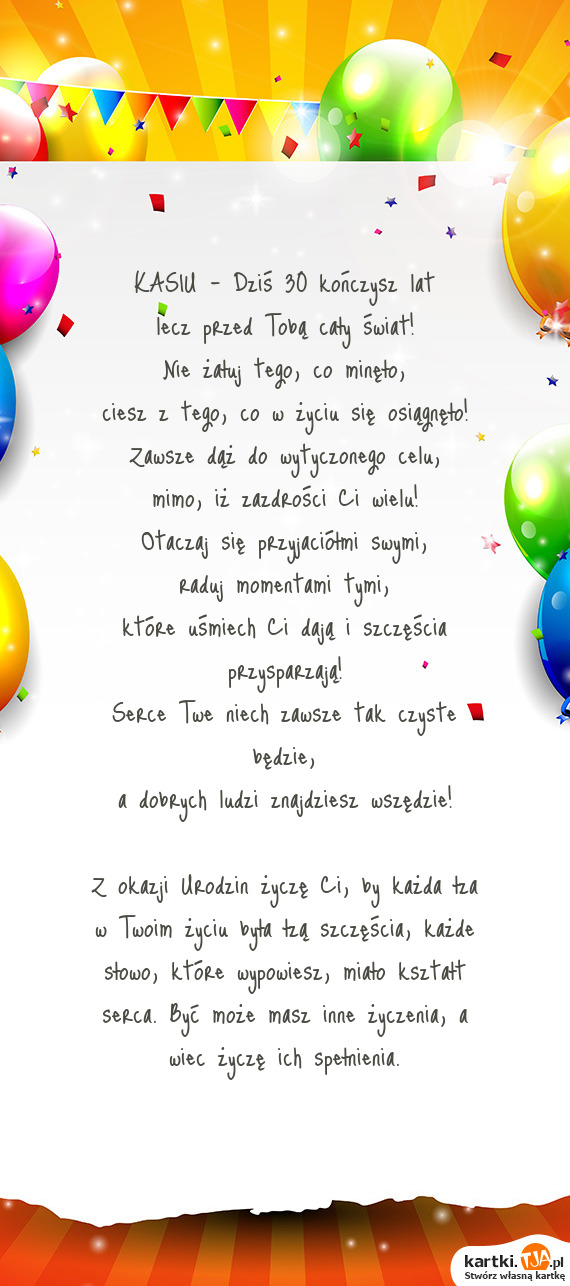 KASIU - Dziś 30 kończysz lat
lecz przed Tobą cały świat!
Nie żałuj tego, co minęło,
ciesz z tego, co w życiu się osiągnęło!
Zawsze dąż do wytyczonego celu,
mimo, iż zazdrości Ci wielu!
Otaczaj się przyjaciółmi swymi,
raduj momentami tymi,
które uśmiech Ci dają i szczęścia
przysparzają!
Serce Twe niech zawsze tak czyste
będzie,
a dobrych ludzi znajdziesz wszędzie!
Z okazji Urodzin życzę Ci, by każda łza
w Twoim życiu była łzą szczęścia, każde
słowo, które wypowiesz, miało kształt
serca. Być może masz inne życzenia, a
wiec życzę ich spełnienia.
kartki.TJA.pl
Stwórz własną kartkę